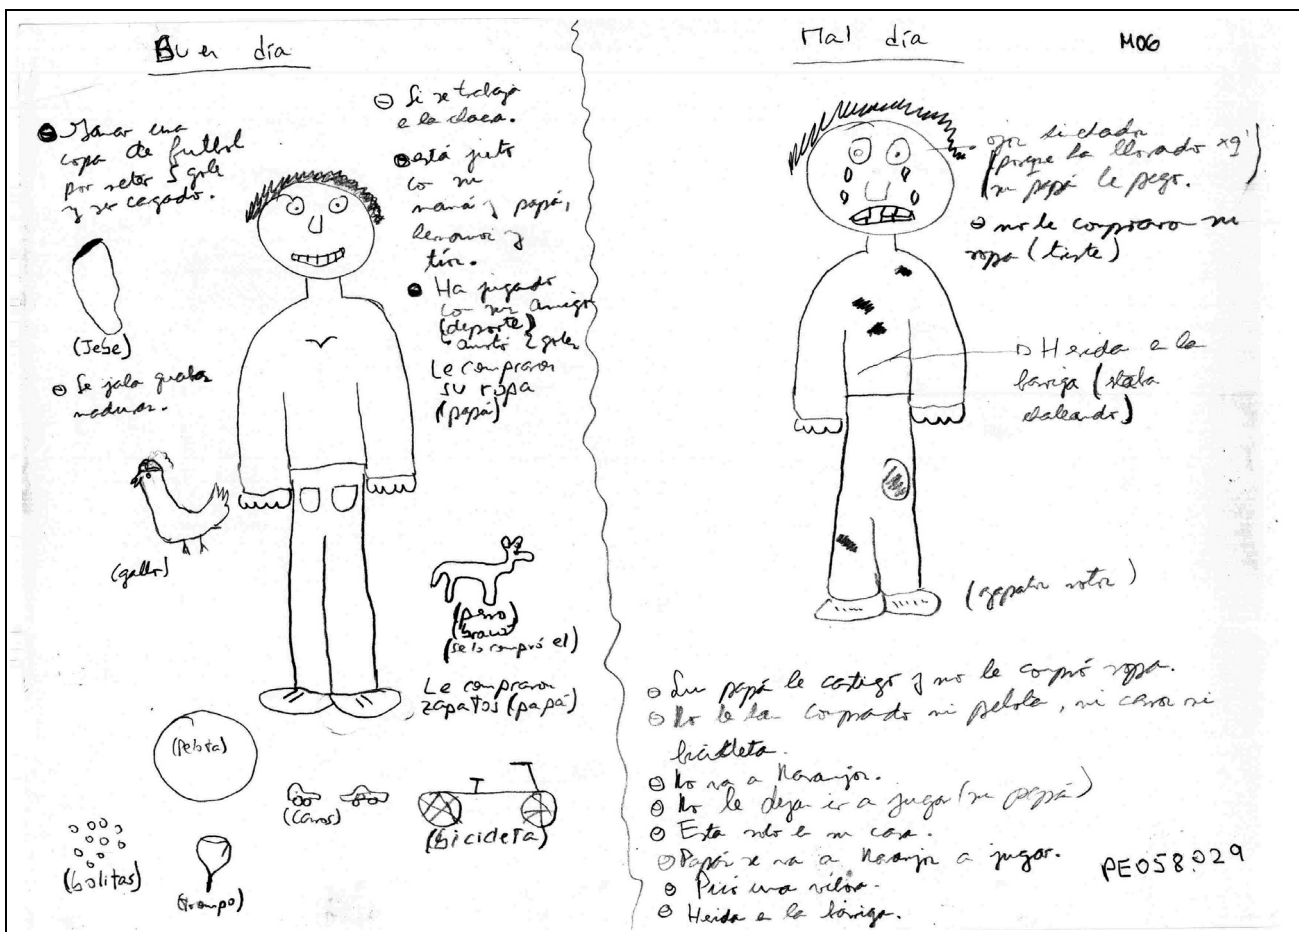 Buen día
Ganar una
copa de futbol
por meter 5 goles
y ser cargado.
(Jebe)
Se jala guabas
maduras.
(gallo)
Si se trabaja
e la chacra.
está junto
co su
mamá y papá,
hermanos y
tíos.
Ha jugado
co sus amigos
(deporte)
2 goles
Le compraron
su ropa
(papá)
(perro)
(se lo compró el)
Le compraron
zapatos (papá)
(Pelota)
(Carros)
(bicicleta)
(bolitas)
(trompo)
Mal día
M06
ojos
(porque ha llorado xq'
su papá le pegó.
no le compraron su
ropa (triste)
Herida e la
barriga (staba
)
(zapatos rotos)
Su papá le castigó y no le compró ropa.
No le han comprado ni pelota, ni carros ni
bicicleta.
No va a Naranjos.
No le dejan ir a jugar (su papá)
Esta solo e su casa.
Papá se va a Naranjos a jugar.
Picó una víbora.
Herida e la barriga.
PE058.029